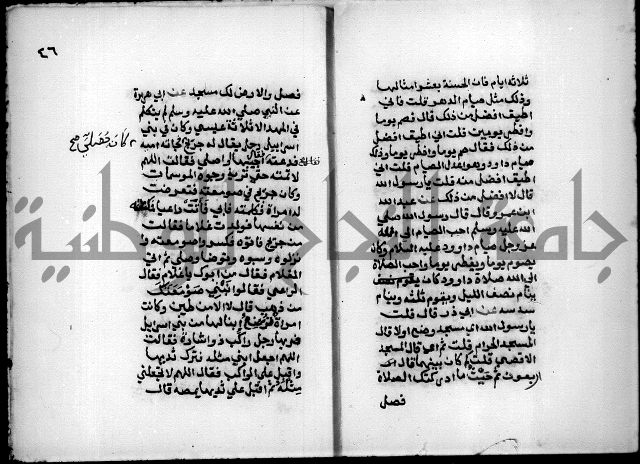 ثلاثة ايام فان الحسنة بعشر امثالها
وذلك مثل صيام الدهر قلت فاني
اطيق افضل من ذلك قال فصم يوما
وافطر يومين قلت اني اطيق افضل
من ذلك فقال صم يوما وافطر يوما وذلك
صيام داود وهو عدل الصيام قلت اني
اطيق افضل منه قلت يا رسول الله
قال لا افضل من ذلك عن عبد الله
ابن عمرو قال قال رسول الله صلى
الله عليه وسلم احب الصيام الى الله
عز وجل صيام داود عليه السلام وكان
يصوم يوما ويفطر يوما واحب الصلاة
الى الله صلاة داود كان يقوم نصف
ينام نصف الليل ويقوم ثلثه وينام
سدسه عن ابي ذر قال قلت
يا رسول الله اي مسجد وضع اولا قال
المسجد الحرام قلت ثم اي قال المسجد
الاقصى قلت كم كان بينهما قال
اربعون ثم حيث ما ادركتك الصلاة
فصل
٤٦
فصلي والارض لك مسجد عن ابي هريرة
عن النبي صلى الله عليه وسلم لم يتكلم
في المهد الا ثلاثة عيسى وكان في بني
اسرائيل رجل يقال له جريج جاءته امه
كان يصلي صح
فدعته فقال اجيبها او اصلي فقالت اللهم
لا تمته حتى تريه وجوه المومسات
وكان جريج في صومعته فتعرضت
له امراة فكلمته فابى فاتت راعيا فامكنته
من نفسها فولدت غلاما فقالت
من جريج فاتوه فكسروا صومعته و
انزلوه وسبوه وتوضا وصلى ثم اتى
الغلام فقال من ابوك يا غلام فقال
الراعي فقالوا نبني صومعتك
من ذهب قال لا الا من طين وكانت
امراة ترضع ابنا لها من بني اسرائيل
فمر بها رجل راكب ذو اشارة فقالت
اللهم اجعل ابني مثله فترك ثديها
واقبل على الراكب فقال اللهم لا تجعلني
مثله ثم اقبل على ثديها يمصه قال
جامعة النجاح الوطنية